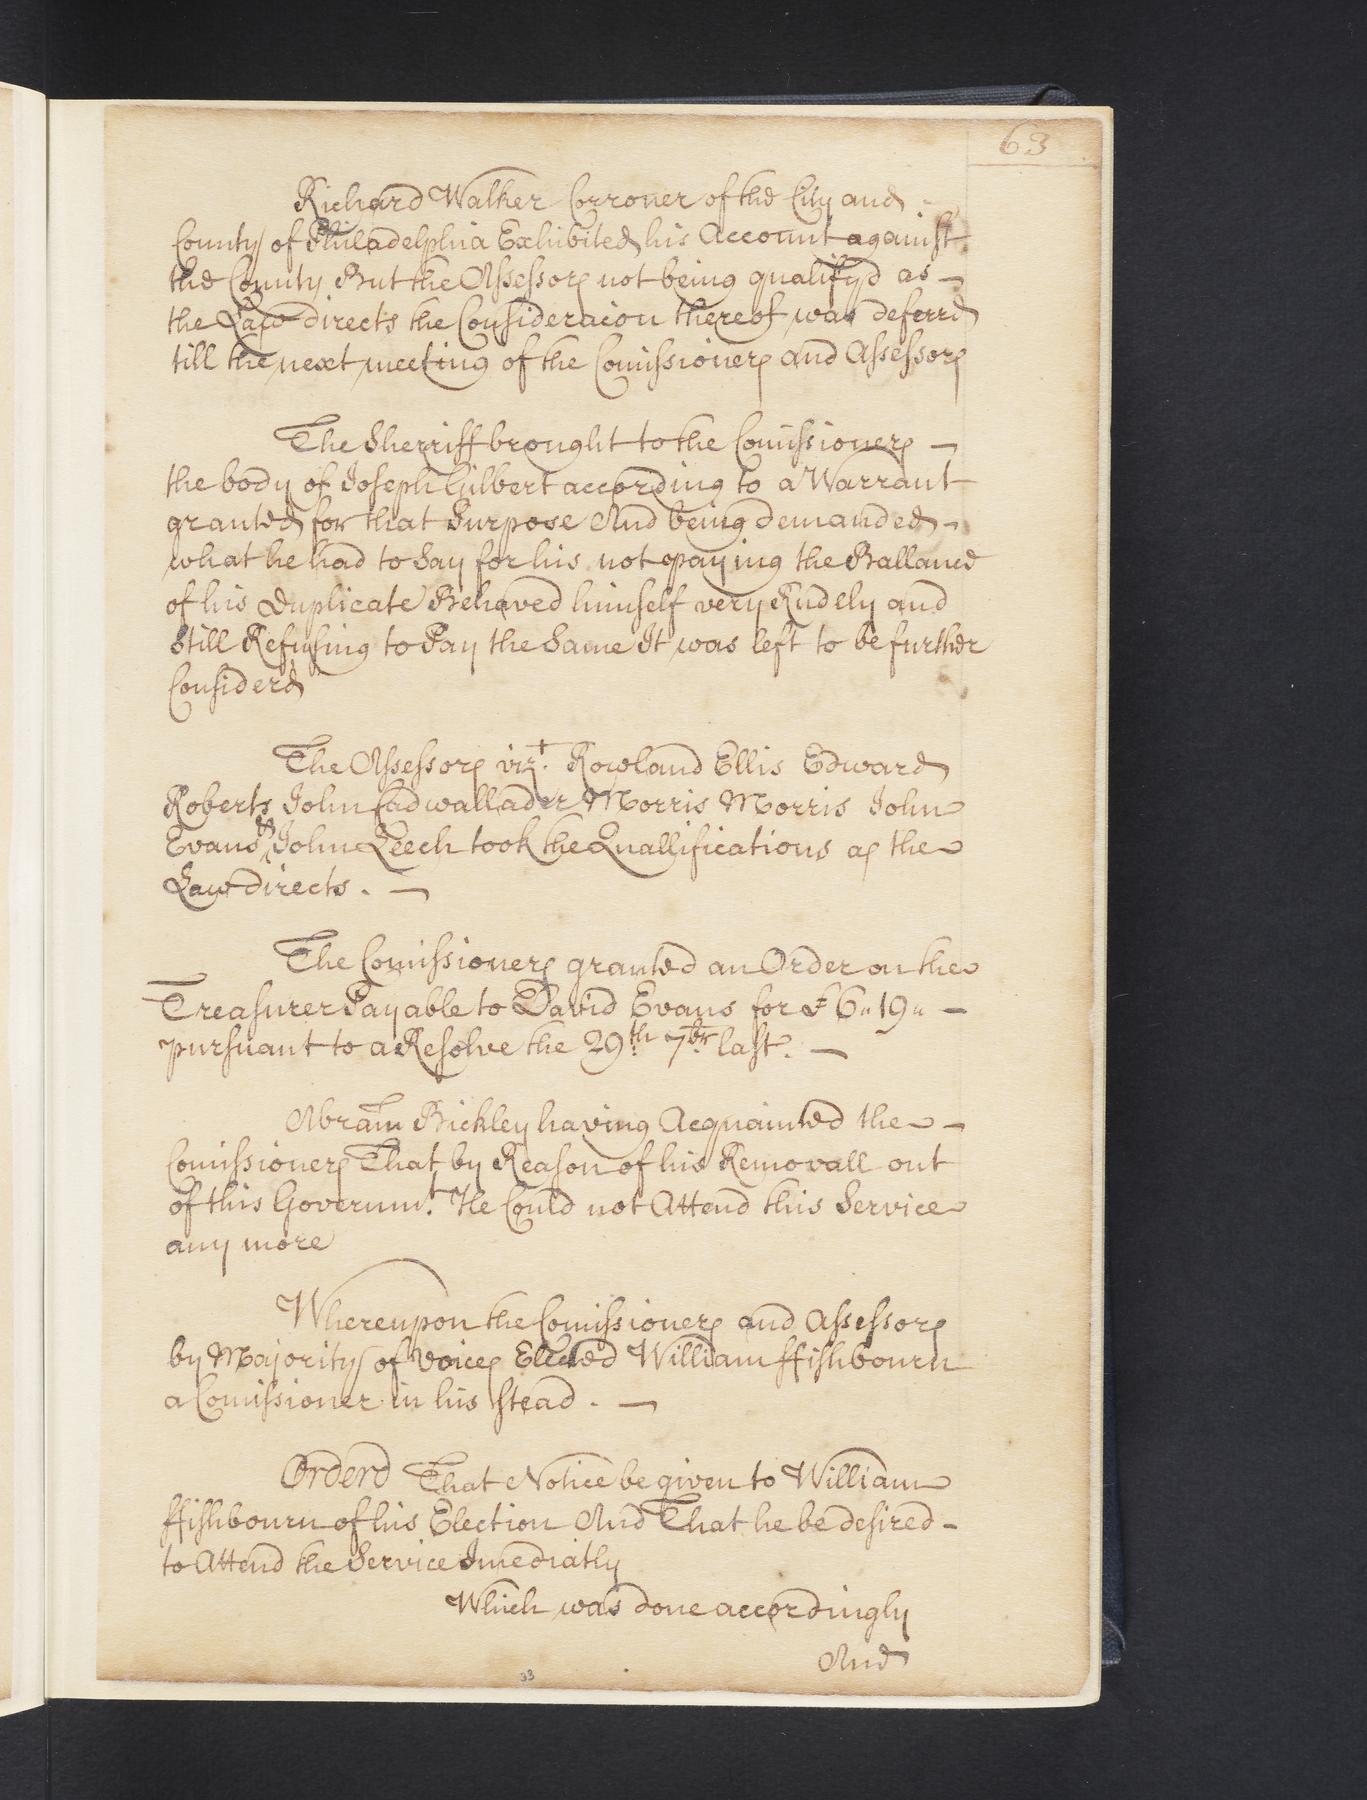 63
Richard Walker Corroner of the City and -
County of Philadelphia Exhibited his Account against
the County But the Assessors not being qualifyd as -
the Law directs the Consideracion thereof was deferrd
till the next meeting of the Comissioners and Assessors
The Sherriff brought to the Comissioners -
the body of Joseph Gilbert according to a Warrant
granted for that Purpose And being demanded -
what he had to Say for his not paying the Ballance
of his Duplicate Behaved himself very Rudely and
Still Refusing to Pay the Same It was left to be further
Considerd
The Assessors vizt. Rowland Ellis Edward
Roberts John Cadwallader Morris Morris John
Evans & John Leech took the Quallifications as the
Law directs. -
The Comissioners granted an Order on the
Treasurer Payable to David Evans for £ 6" 19" -
pursuant to a Resolve the 29th. 7br. last. -
Abram Bickley having Acquainted the -
Comissioners That by Reason of his Removall out
of this Governmt. He Could not Attend this Service
any more
Whereupon the Comissioners and Assessors
by Majority of Voices Elected William ffishbourn
a Comissioner in his Stead. -
Orderd That Notice be given to William
ffishbourn of his Election And That he be desired -
to Attend the Service Imediatly
Which was done accordingly
And
33